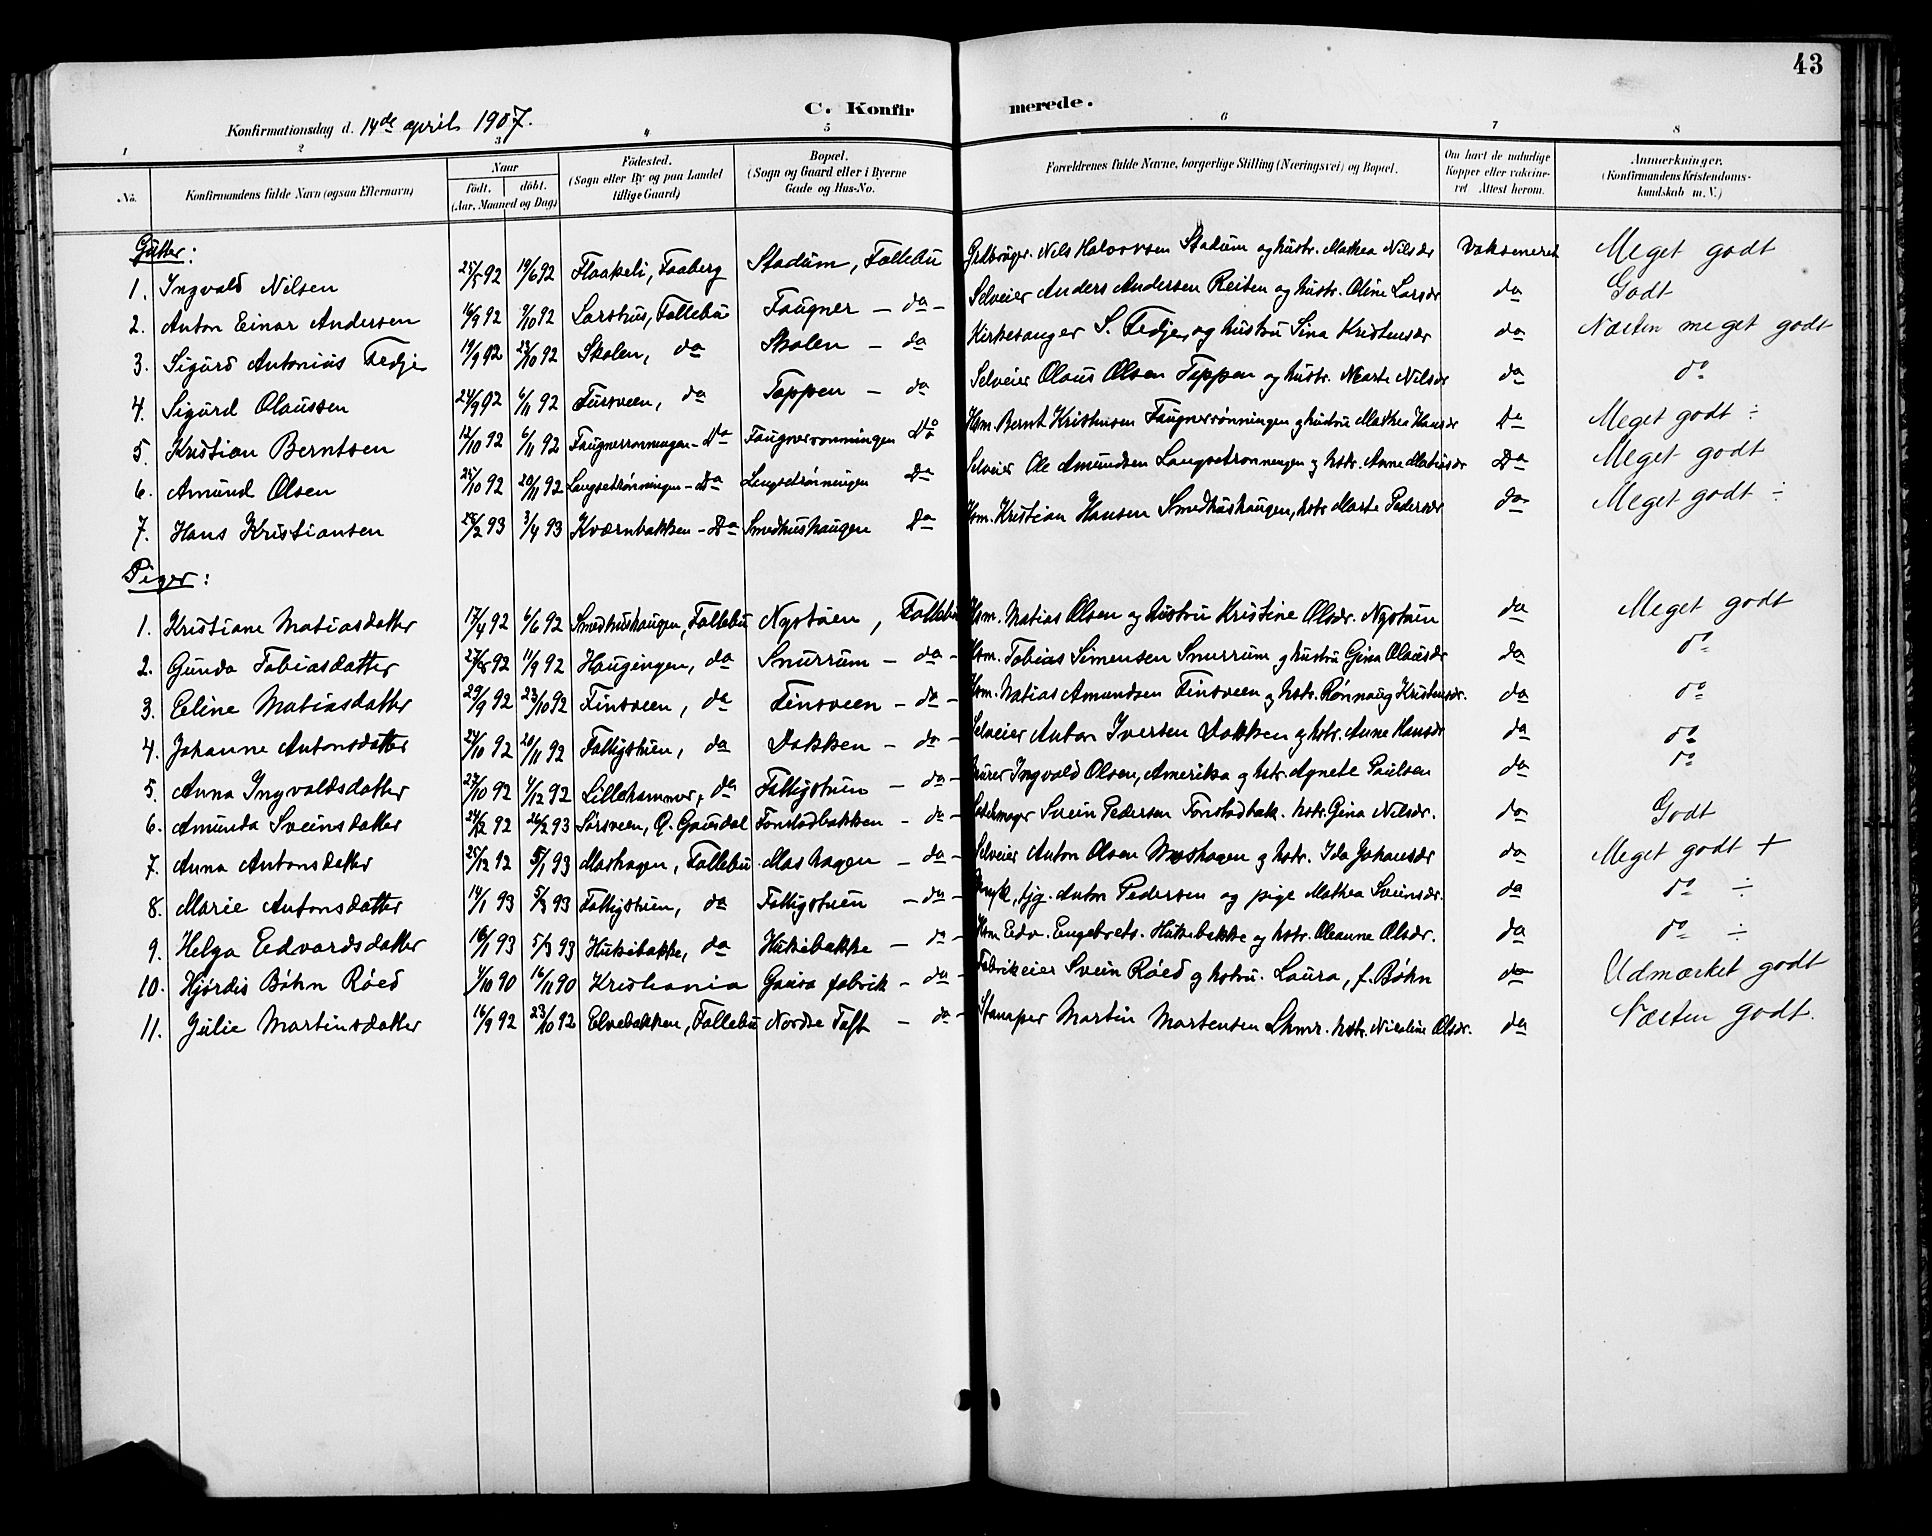 43
C. Konfirmerede.
Konfirmationsdag d. 14de april 1907.
1 2 3 4 5 6 7 8
No. Konfirmandens fulde Navn (ogsaa Efternavn) Naar født. døbt. (Aar, Maaned og Dag) Fødested. (Sogn eller By og paa Landet tillige Gaard) Bopæl. (Sogn og Gaard eller i Byerne Gade og Hus-No. Forældrenes fulde Navne, borgerlige Stilling (Næringsvei) og Bopæl. Om havt de naturlige Kopper eller vaccineret Attest herom. Anmerkninger. (Konfirmandens Kristendomskundskab m. V.)
Gutter:
1. Ingvald Nilsen 25/5 92 19/6 92 Flaakeli, Faaberg Stadum, Follebu Nils Halvorsen Stadum og hustr. Mathea Nilsdr Vaksineret Meget godt
2. Anton Einar Andersen 16/9 92 9/10 92 Larshus, Follebu Faugner - do - Selveier Anders Andersen Reiten og hustr. Oline Larsdr do Godt
3. Sigurd Antonius Fedje 19/9 92 23/10 92 Skolen, do Skolen - do Kirkesanger S. Fedje, og hustru Sina Kristensdr do Næsten meget godt
4. Sigurd Olaussen 24/9 92 6/11 92 Fursveen, do Toppen - do Selveier Olaus Olsen Toppen og hustr. Marte Nilsdr do do
5. Kristian Berntsen 12/10 92 6/11 92 Faugnerrønningen - Do Faugnerrønningen Do Hsm. Bernt Kristensen Faugnerrønningen og hustru Mathea Hansdr Do Meget godt ÷
6. Amund Olsen 25/10 92 20/11 92 Langsetrønningen - Do Langsetrønningen Do Selveier Ole Amundsen Langsetrønningen og hstr. Anne Matiasdr Do Meget godt
7. Hans Kristiansen 25/2 93 3/4 93 Kværnbakken - Do Smedhushaugen Do Hsm. Kristian Hansen Smedhushaugen, hstr Marte Pedersdr do Meget godt ÷
Piger:
1. Kristiane Matiasdatter 17/4 92 6/6 92 Smedhushaugen, Follebu Nystuen, Follebu Hsm. Matias Olsen og hustru Kristine Olsdr. Nystuen do Meget godt
2. Gunda Tobiasdatter 27/8 92 11/9 92 Haugingen, do Snurrum - do - Hsm. Tobias Simensen Snurrum og hustru Gina Olausdr do do
3. Eline Matiasdatter 29/9 92 23/10 92 Finsveen, do Finsveen - do - Hsm. Matias Amundsen Finsveen og hstr. Rønnaug Kristensdr. do do
4. Johanne Antonsdatter 24/10 92 20/11 92 Folligstuen, do Dokken - do - Selveier Anton Iversen Dokken og hstr. Anne Hansdr do do
5. Anna Ingvaldsdatter 27/10 92 4/12 92 Lillehammer, do Folligstuen - do - Murer Ingvald Olsen, Amerika og hstr. Agnete Paulsen do do
6. Amunda Sveinsdatter 24/12 92 26/2 93 Sørsveen, Ø. Gausdal Fonstadbakken - do - Svein Pedersen Fonstadbak. hstr. Gina Nilsdr. do Godt
7. Anna Antonsdatter 25/12 92 5/1 93 Moshagen, Follebu Moshagen - do - Selveier Anton Olsen Moshagen og hstr. Ida Johansdr do Meget godt +
8. Marie Antonsdatter 14/1 93 5/3 93 Folligstuen, do Folligstuen - do - Ungk., tjg. Anton Pedersen og pige Mathea Sveinsdr. do do ÷
9. Helga Edvardsdatter 16/1 93 5/3 93 Hukibakke, do Hukibakke - do - Hsm Edv. Engebrets. Hukebakke og hstr. Oleanne Olsdr. do do ÷
10. Hjørdis Bøhn Røed 4/10 90 16/11 90 Kristiania Gausa fabrik - do - Fabrikeier Svein Røed og hstru. Laura, f. Bøhn do Udmærket godt
11. Julie Martinsdatter 16/9 92 23/10 92 Elvebakken, Follebu Nordre Toft - do - Stamper Martin Mortensen Lhmr. hstr. Nicoline Olsdr. do Næsten godt.